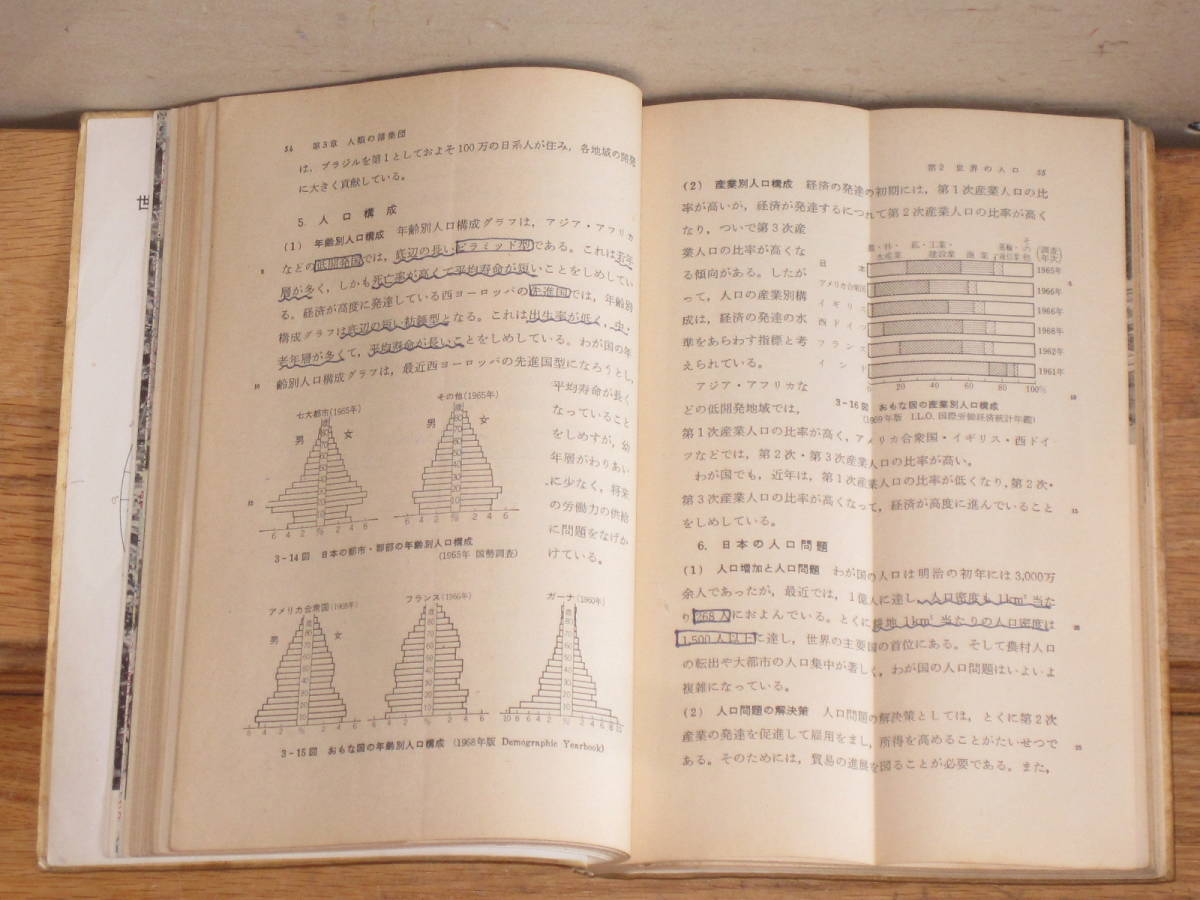 54 第3章 人類の諸集団
は，ブラジルを第1としておよそ100万の日系人が住み，各地域の開発
に大きく貢献している。
5. 人口構成
(1) 年齢別人口構成 年齢別人口構成グラフは，アジア・アフリカ
などの低開発国では，底辺の長いピラミッド型である。これは若年
層が多く，しかも死亡率が高くて平均寿命が短いことをしめしてい
る。経済が高度に発達している西ヨーロッパの先進国では，年齢別
構成グラフは底辺の短い紡錘型となる。これは出生率が低く，中・
老年層が多くて，平均寿命が長いことをしめしている。わが国の年
齢別人口構成グラフは，最近西ヨーロッパの先進国型になろうとし，
平均寿命が長く
なっていること
をしめすが，幼
年層がわりあい
に少なく，将来
の労働力の供給
に問題をなげか
けている。
七大都市(1965年)
その他(1965年)
男 女
男 女
3-14図 日本の都市・郡部の年齢別人口構成
(1965年 国勢調査)
アメリカ合衆国(1968年)
フランス(1966年)
ガーナ(1960年)
男 女
3-15図 おもな国の年齢別人口構成 (1968年版 Demographic Yearbook)
第2 世界の人口 55
(2) 産業別人口構成 経済の発達の初期には，第1次産業人口の比
率が高いが，経済が発達するにつれて第2次産業人口の比率が高く
なり，ついで第3次産
業人口の比率が高くな
る傾向がある。したが
って，人口の産業別構
成は，経済の発達の水
準をあらわす指標と考
えられている。
アジア・アフリカな
どの低開発地域では，
農・林・水産業
鉱・工業・建設業
商業
運輸・通信業
その他
(調査年次)
日本 1965年
アメリカ合衆国 1966年
イギリス 1966年
西ドイツ 1968年
フランス 1962年
インド 1961年
0 20 40 60 80 100%
3-16図 おもな国の産業別人口構成
(1969年版 I.L.O. 国際労働経済統計年鑑)
第1次産業人口の比率が高く，アメリカ合衆国・イギリス・西ドイ
ツなどでは，第2次・第3次産業人口の比率が高い。
わが国でも，近年は，第1次産業人口の比率が低くなり，第2次・
第3次産業人口の比率が高くなって，経済が高度に進んでいること
をしめしている。
6. 日本の人口問題
(1) 人口増加と人口問題 わが国の人口は明治の初年には3,000万
余人であったが，最近では，1億人に達し，人口密度も1km²当た
り268人におよんでいる。とくに耕地1km²当たりの人口密度は
1,500人以上に達し，世界の主要国の首位にある。そして農村人口
の転出や大都市の人口集中が著しく，わが国の人口問題はいよいよ
複雑になっている。
(2) 人口問題の解決策 人口問題の解決策としては，とくに第2次
産業の発達を促進して雇用をまし，所得を高めることがたいせつで
ある。そのためには，貿易の進展を図ることが必要である。また，